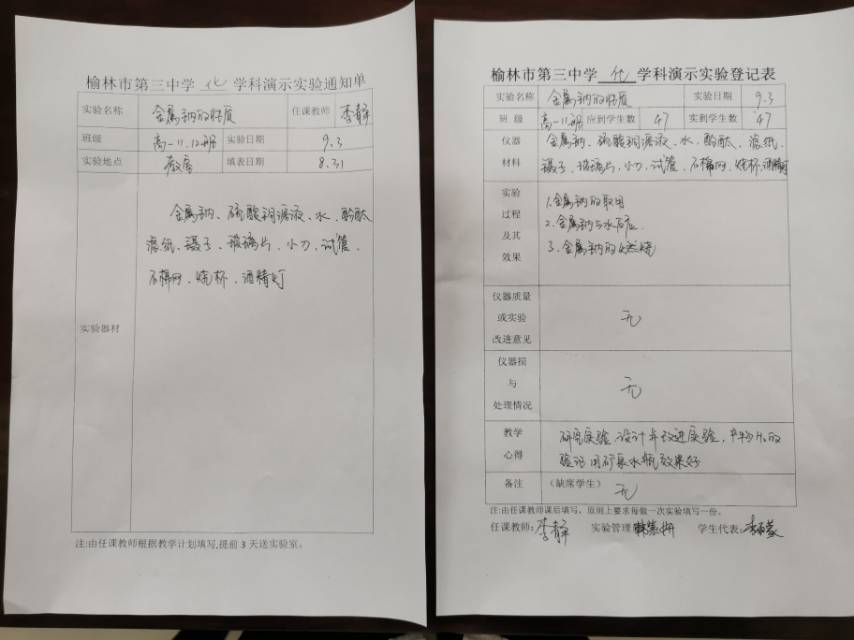 榆林市第三中学 化 学科演示实验通知单
实验名称 金属钠的性质 任课教师 李静
班级 高一11.12班 实验日期 9.3
实验地点 教室 填表日期 8.31
实验器材
金属钠、硫酸铜溶液、水、酚酞
滤纸、镊子、玻璃片、小刀、试管、
石棉网、烧杯、酒精灯
注:由任课教师根据教学计划填写,提前3天送实验室。
榆林市第三中学 化 学科演示实验登记表
实验名称 金属钠的性质 实验日期 9.3
班 级 高一11班 应到学生数 47 实到学生数 47
仪器 金属钠、硫酸铜溶液、水、酚酞、滤纸、
材料 镊子、玻璃片、小刀、试管、石棉网、烧杯、酒精灯
实验
过程
及其
效果
1.金属钠的取用
2.金属钠与水反应
3.金属钠的燃烧
仪器质量
或实验
改进意见
无
仪器损
与
处理情况
无
教学 研究实验,设计并改进实验,产物H₂的
心得 验证用矿泉水瓶效果好
备注 (缺席学生) 无
注:由任课教师课后填写。原则上要求每做一次实验填写一份。
任课教师:李静 实验管理 学生代表: